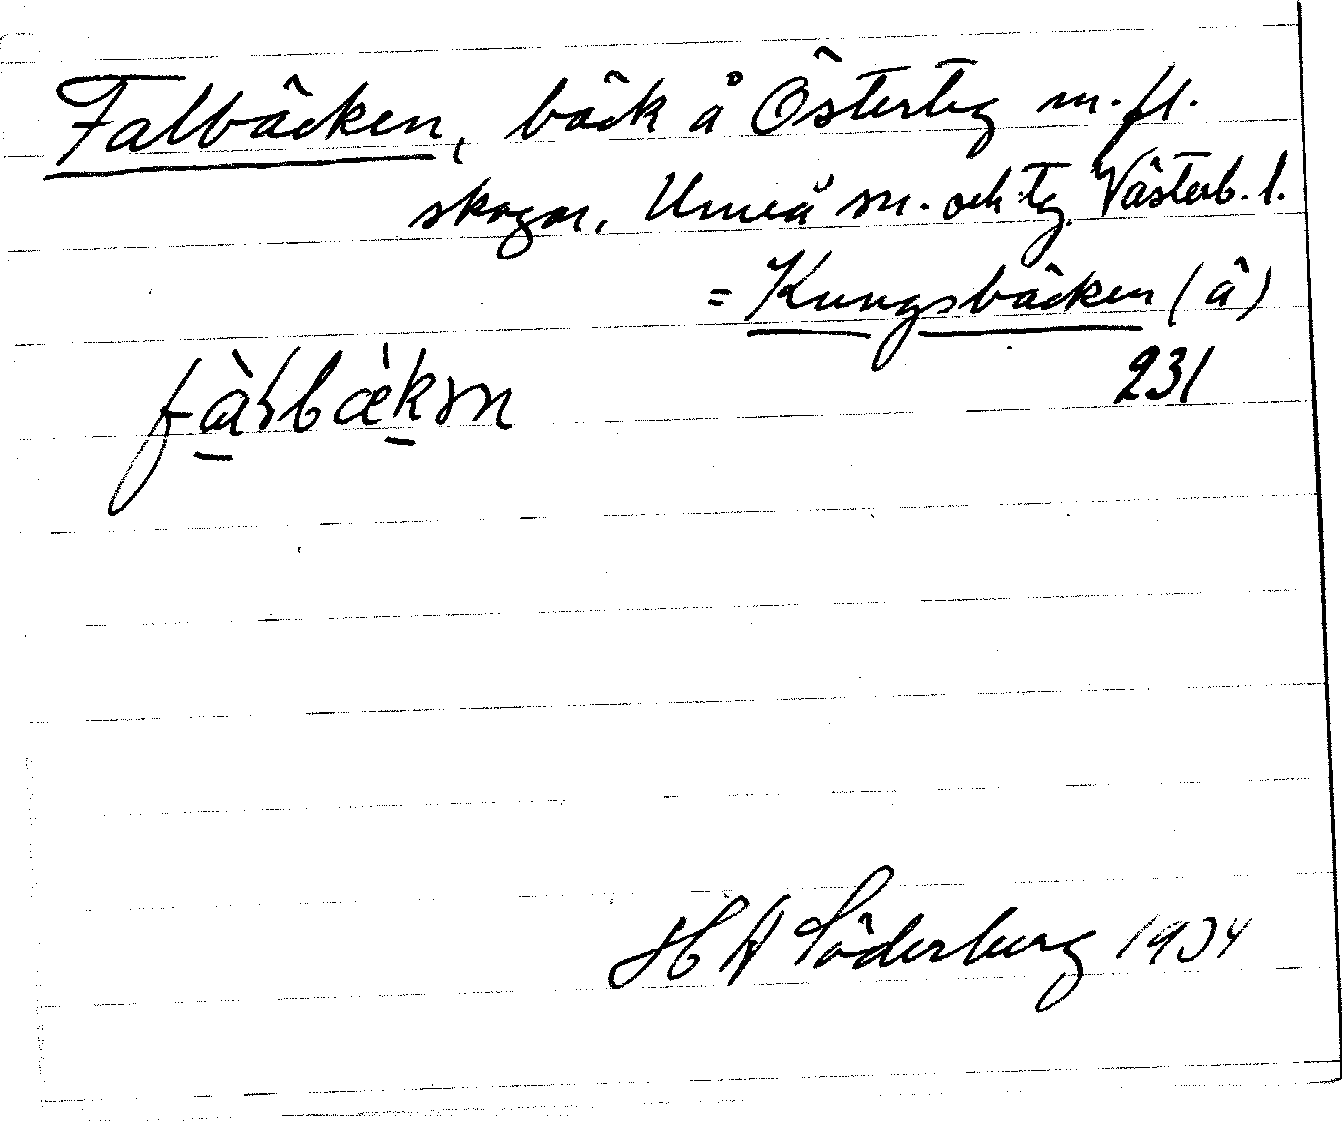 Falbäcken, bäck å Österteg m.fl.
skogar, Umeå sn. och tg. Västerb. l.
= Kungsbäcken (ä)
231
H A Söderberg 1934